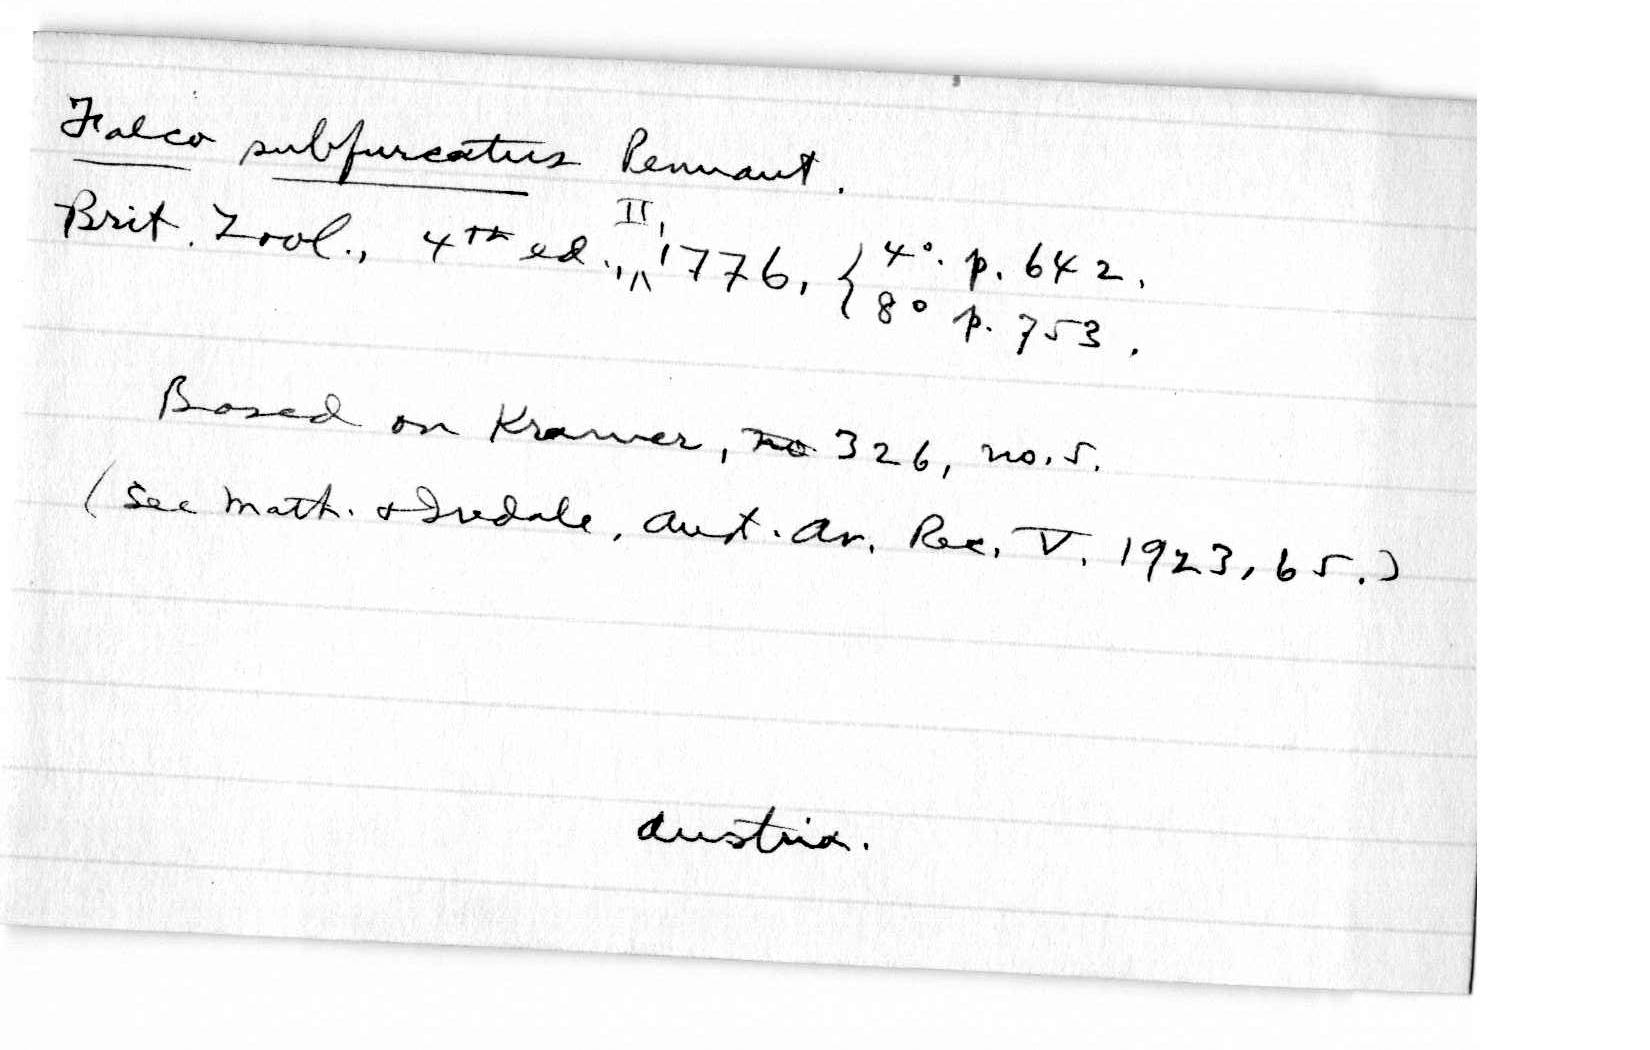 Falco subfurcatus Pennant.
Brit. Zool., 4th ed., II, 1776, { 4°. p. 642.
8° p. 753.
Based on Kramer, no 326, no. 5.
(See Math. & Iredale, Aust. Av. Rec. V. 1923, 65.)
Austria.